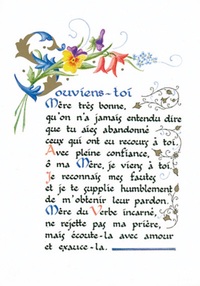 Souviens-toi
Mère très bonne,
qu'on n'a jamais entendu dire
que tu aies abandonné
ceux qui ont eu recours à toi.
Avec pleine confiance,
ô ma Mère, je viens à toi.
Je reconnais mes fautes
et je te supplie humblement
de m'obtenir leur pardon.
Mère du Verbe incarné,
ne rejette pas ma prière,
mais écoute-la avec amour
et exauce-la.